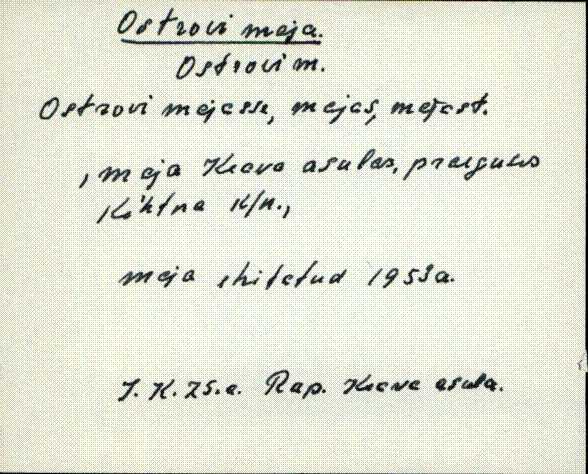 Ostrovi maja.
Ostrovi m.
Ostrovi majasse, majas, majast.
, maja Keava asulas, praegunes
Kohtna k/n.,
maja ehitatud 1953a.
J. K. 75.a. Rap. Keava asula.